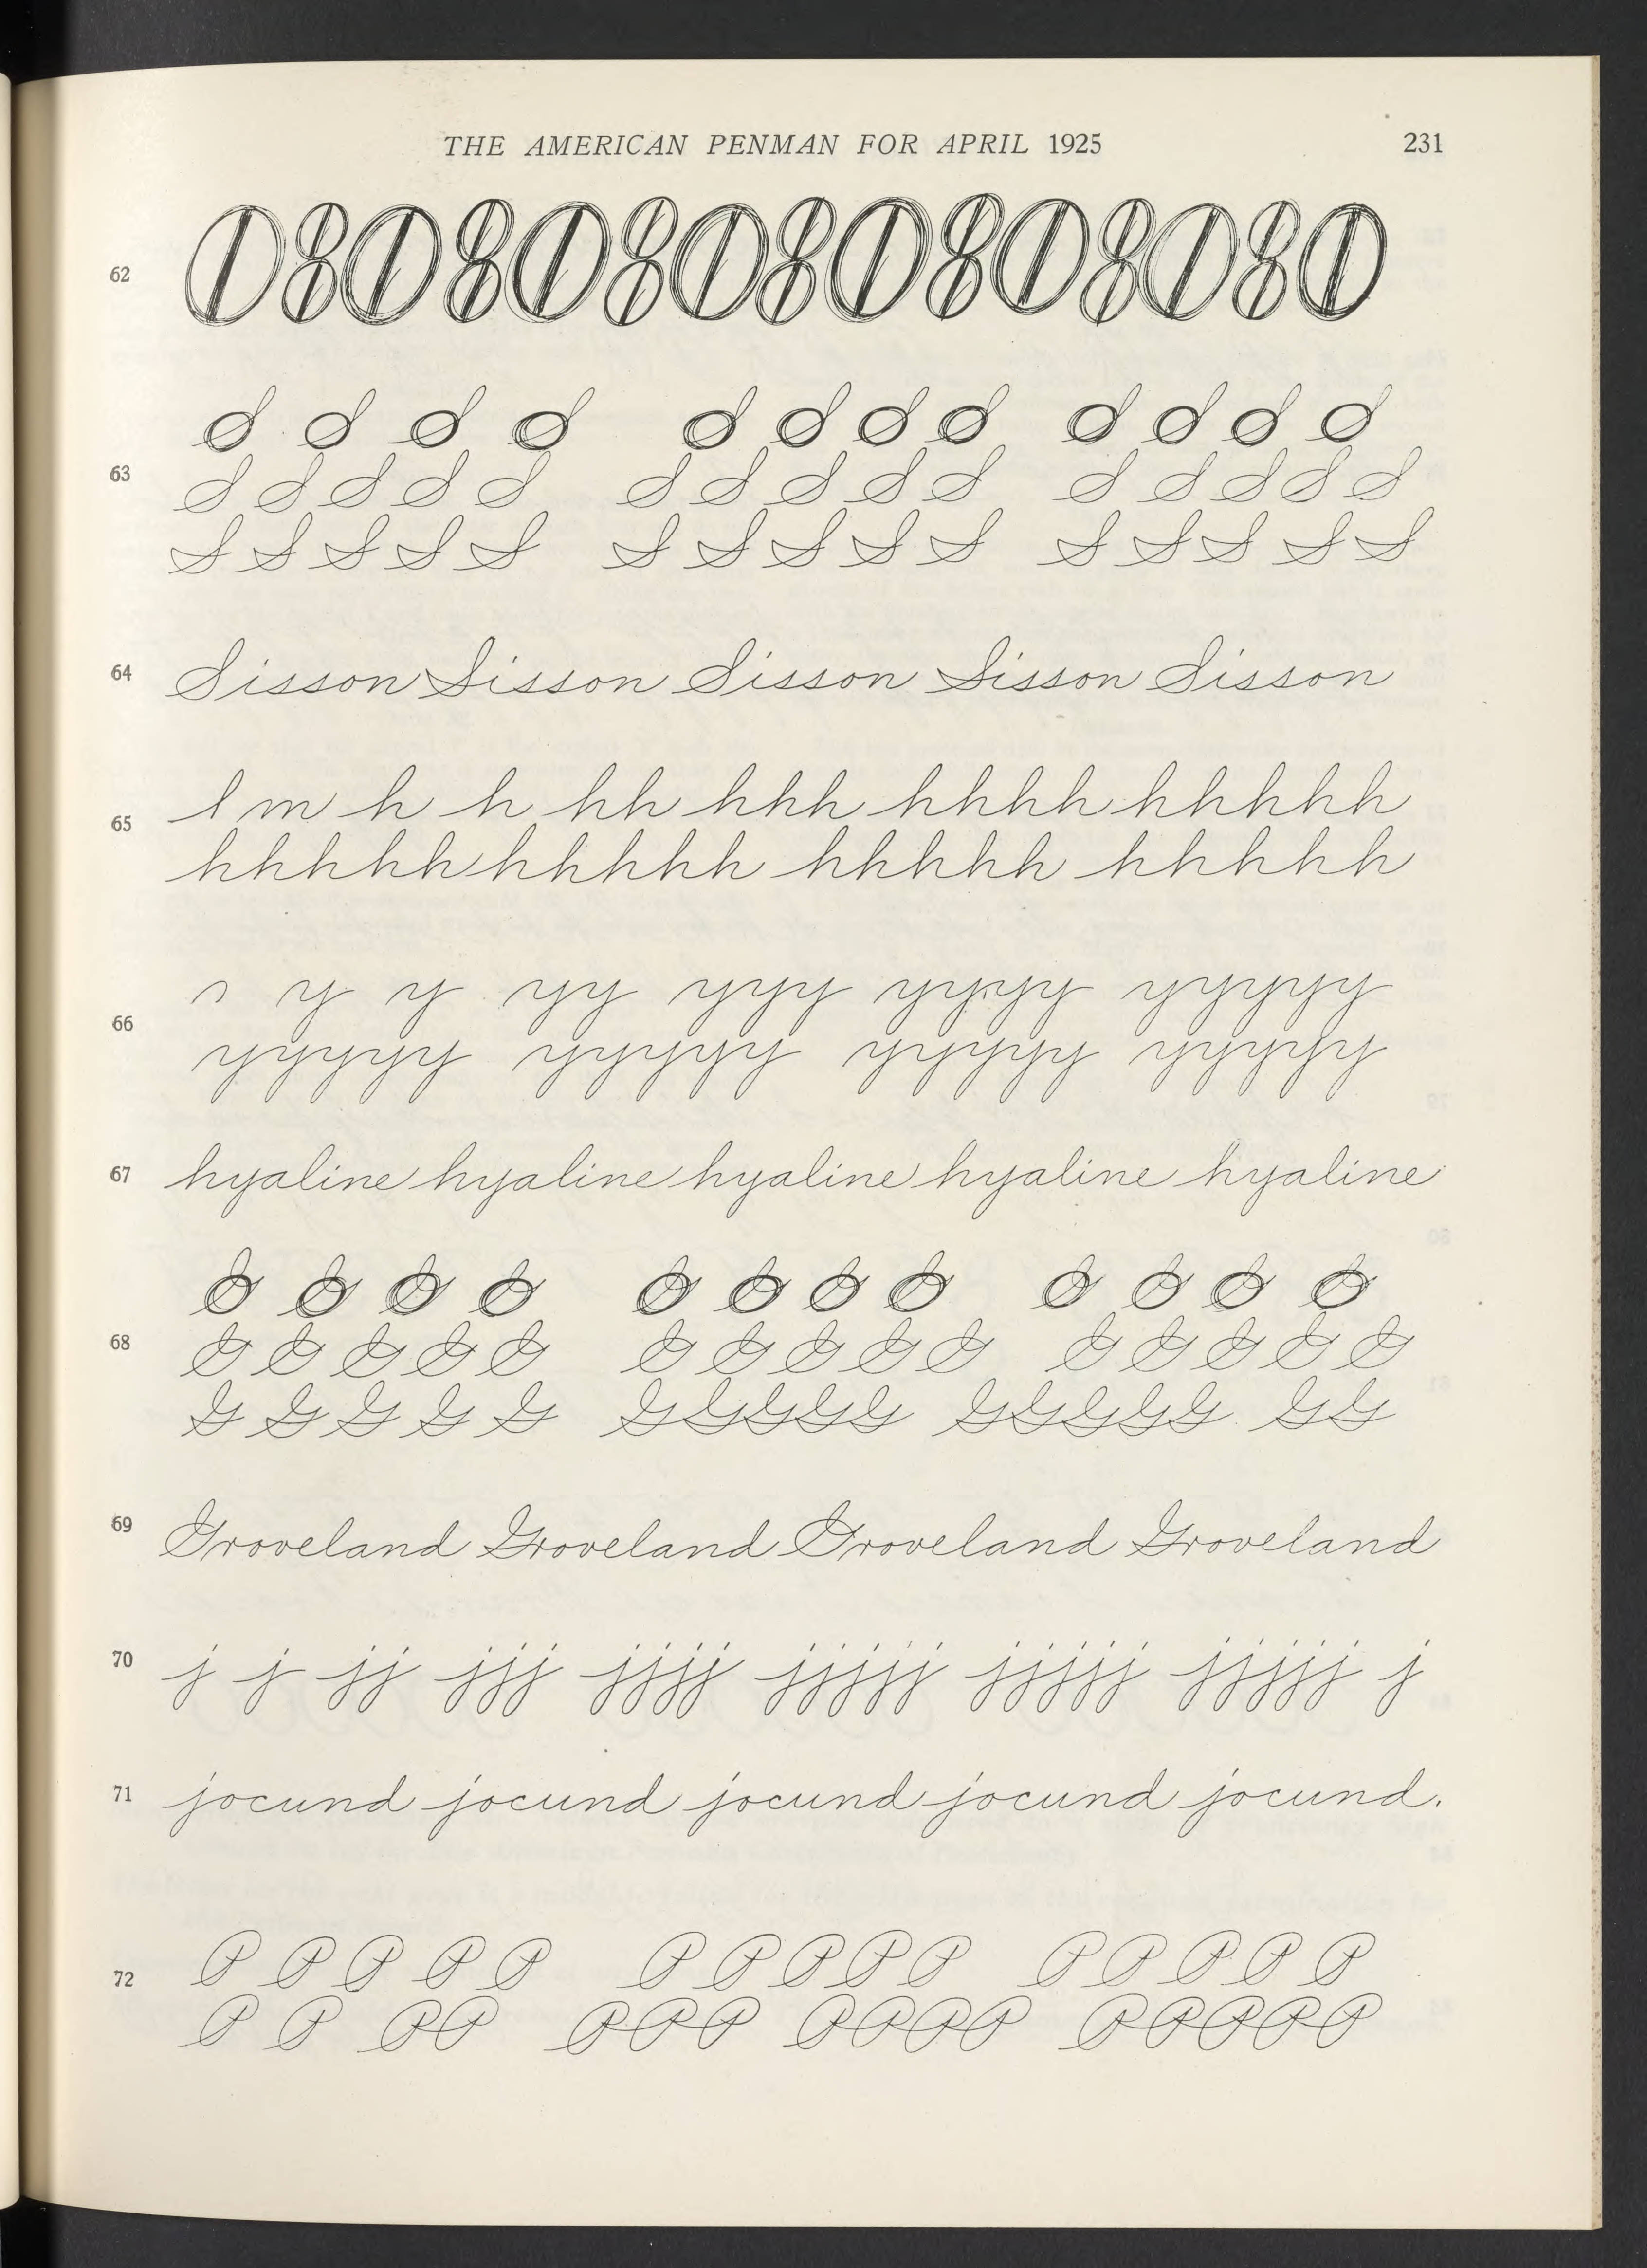 THE AMERICAN PENMAN FOR APRIL 1925 231
62 0 8 0 8 0 8 0 8 0 8 0 8 0 8 0
63 S S S S S S S S S S S S
S S S S S S S S S S S S S S S
S S S S S S S S S S S S S S S
64 Sisson Sisson Sisson Sisson Sisson
65 l m h h hh hhh hhhh hhhhh
hhhhh hhhhh hhhhh hhhhh
66 y y yy yyy yyyy yyyyy
yyyyy yyyyy yyyyy yyyyy
67 hyaline hyaline hyaline hyaline hyaline
68 G G G G G G G G G G G G
G G G G G G G G G G G G G G G
G G G G G GGGGG GGGGG GG
69 Groveland Groveland Groveland Groveland
70 j j jj jjj jjjj jjjjj jjjjj jjjjj j
71 jocund jocund jocund jocund jocund.
72 P P P P P P P P P P P P P P P
P P PP PPP PPPP PPPPP